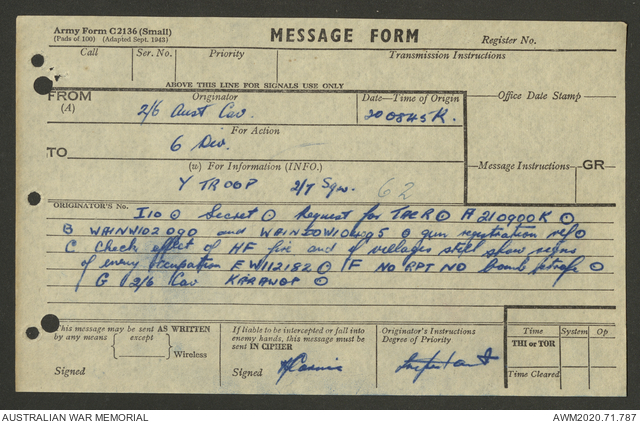 Army Form C2136 (Small)
(Pads of 100) (Adapted Sept. 1943)
MESSAGE FORM
Register No.
Call
Ser. No.
Priority
Transmission Instructions
ABOVE THIS LINE FOR SIGNALS USE ONLY
FROM
(A)
Originator
2/6 Aust Cav.
Date—Time of Origin
200845K.
Office Date Stamp
TO
For Action
6 Div.
(w) For Information (INFO.)
Y TROOP 2/7 Sqn. 62
Message Instructions
GR
ORIGINATOR'S No.
I10 ⊙ Secret ⊙ Request for TAC R ⊙ A 210900K ⊙
B and gun registration
C Check effect of HF fire and if villages still show signs
of enemy occupation E W112182 ⊙ F NO RPT NO bomb strafe ⊙
G 2/6 Cav KARAWOP ⊙
This message may be sent AS WRITTEN
by any means
except
Wireless
Signed
If liable to be intercepted or fall into
enemy hands, this message must be
sent IN CIPHER
Signed
Originator's Instructions
Degree of Priority
Important
Time
System
Op
THI or TOR
Time Cleared
AUSTRALIAN WAR MEMORIAL
AWM2020.71.787